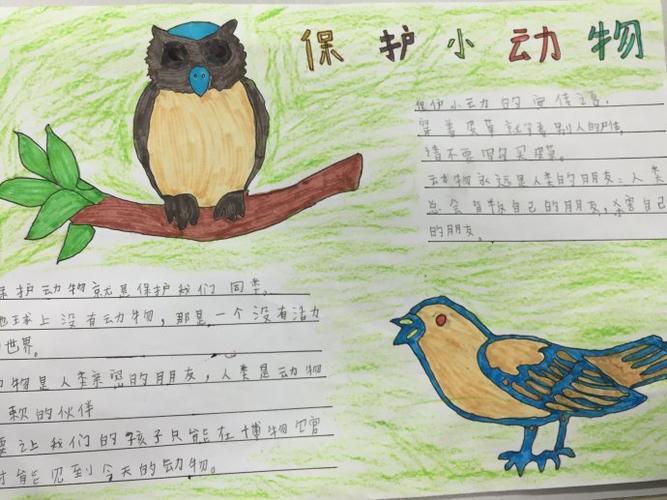 保护小动物
保护小动的宣传语.
穿着皮草就穿着别人的尸体,
请不要购买皮草。
动物永远是人类的朋友:人类
总会自救自己的朋友,杀害自己
的朋友。
保护动物就是保护我们同类。
地球上没有动物,那是一个没有活力
世界。
物是人类亲密的朋友,人类是动物
赖的伙伴
要让我们的孩子只能在博物官
才能见到今天的动物。